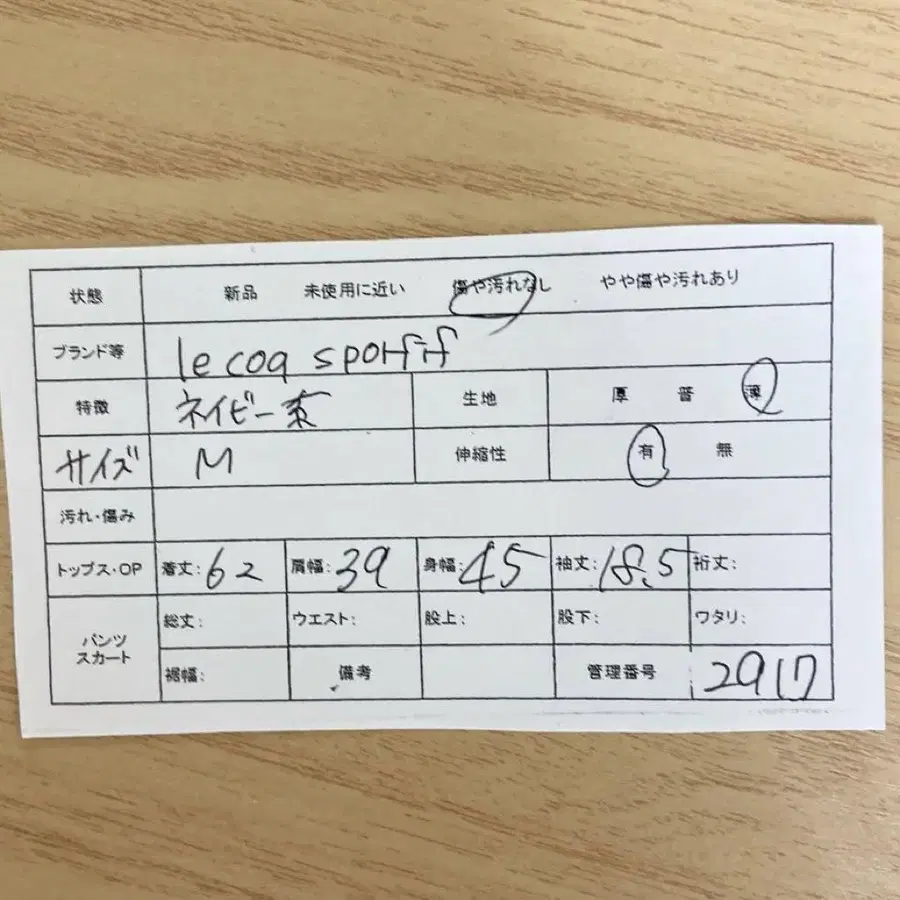 状態 新品 未使用に近い 傷や汚れなし やや傷や汚れあり
ブランド等 le coq sportif
特徴 ネイビー系 生地 厚 普 薄
サイズ M 伸縮性 有 無
汚れ・傷み
トップス・OP 着丈: 62 肩幅: 39 身幅: 45 袖丈: 18.5 裄丈:
パンツ スカート 総丈: ウエスト: 股上: 股下: ワタリ:
裾幅: 備考 管理番号 2917